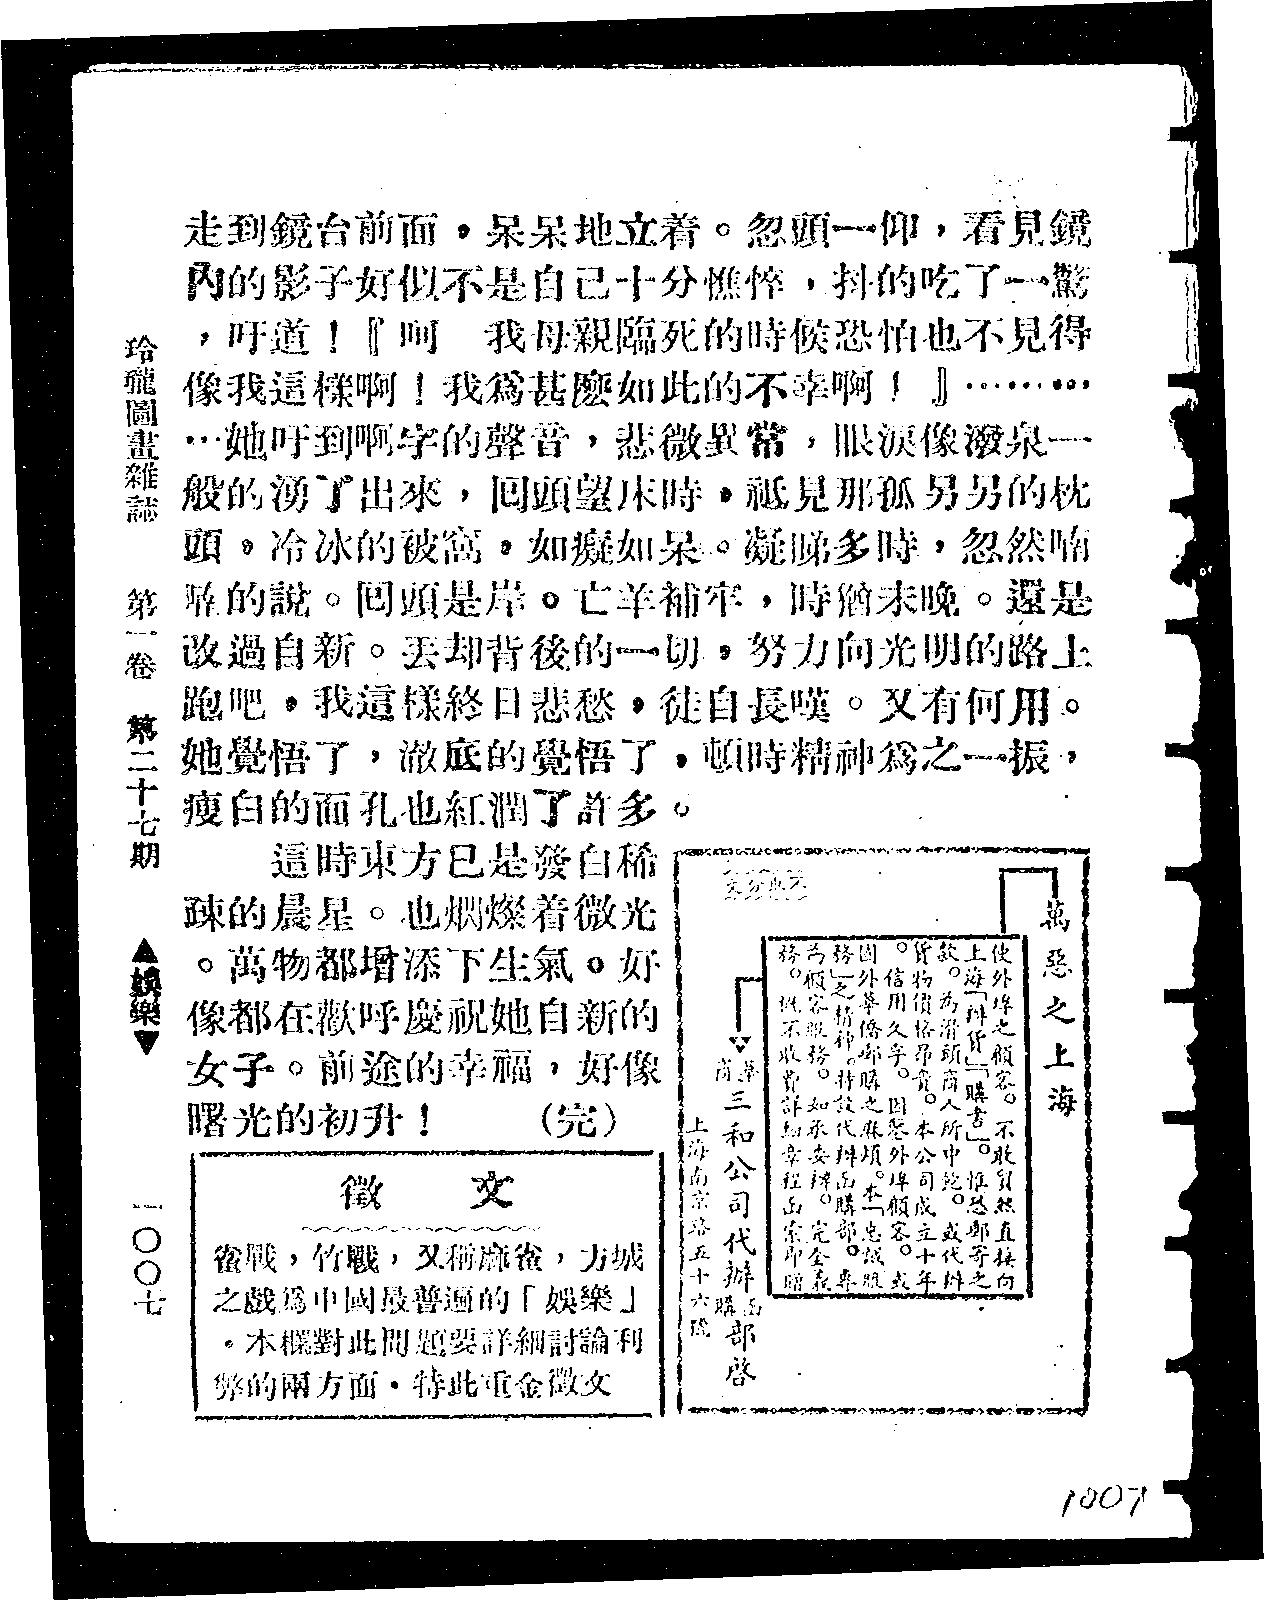 走到鏡台前面。呆呆地立着。忽頭一仰，看見鏡
內的影子好似不是自己十分憔悴，抖的吃了一驚
，吁道！『呵　我母親臨死的時候恐怕也不見得
像我這樣啊！我爲甚麽如此的不幸啊！』………
…她吁到啊字的聲音，悲微異常，眼淚像潑泉一
般的湧了出來，回頭望床時。祗見那孤另另的枕
頭。冷冰的被窩。如癡如呆。凝睇多時，忽然喃
喃的說。回頭是岸。亡羊補牢，時猶未晚。還是
改過自新。丟却背後的一切。努力向光明的路上
跑吧。我這樣終日悲愁。徒自長嘆。又有何用。
她覺悟了，澈底的覺悟了。頓時精神爲之一振，
瘦白的面孔也紅潤了許多。
這時東方已是發白稀
疎的晨星。也燗燦着微光
。萬物都增添下生氣。好
像都在歡呼慶祝她自新的
女子。前途的幸福，好像
曙光的初升！　　（完）
徵　文
雀戰，竹戰，又稱麻雀，方城
之戲爲中國最普遍的「娛樂」
。本欄對此問題要詳細討論利
弊的兩方面。特此重金徵文
萬惡之上海
使外埠之顧客。不敢貿然直接向
上海「辦貨」「購書」。惟恐郵寄之
欵。為滑頭商人所中飽。或代辦
貨物價格昂貴。本公司成立十年
。信用久孚。因鑒外埠顧客。或
國外華僑郵購之麻煩。本「忠誠服
務」之精神。特設代辦函購部。專
為顧客服務。如承委辦。完全義
務。概不收費詳細章程函索即贈
華商三和公司代辦函購部啓
上海南京路五十六號
玲瓏圖畫雜誌　第一卷　第二十七期　▲娛樂▼　一〇〇七
1007